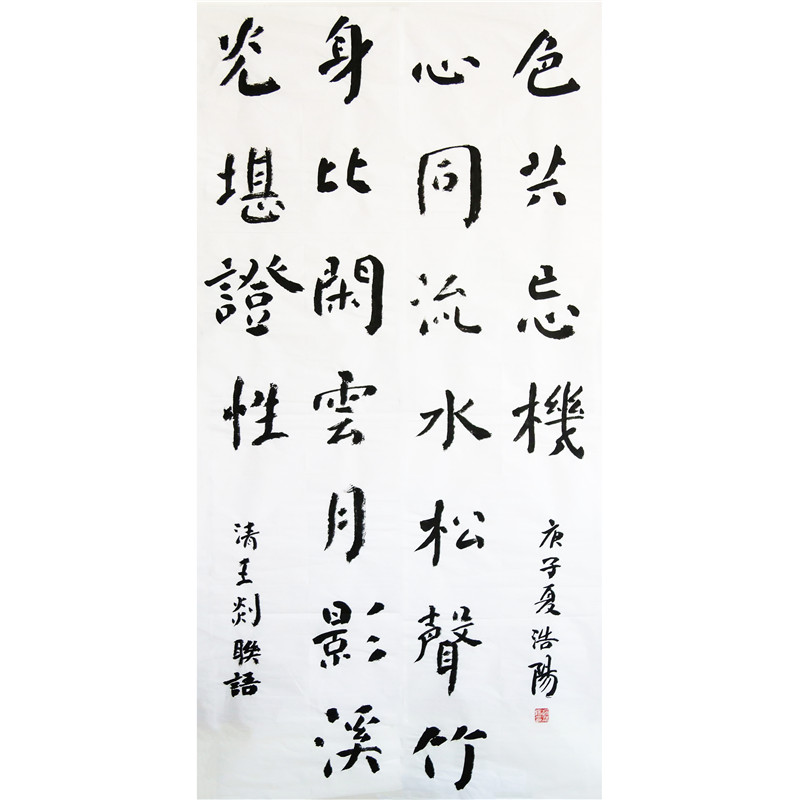 身比閑雲月影溪
光堪證性
清王剡聯語
心同流水松聲竹
色共忘機
庚子夏浩陽